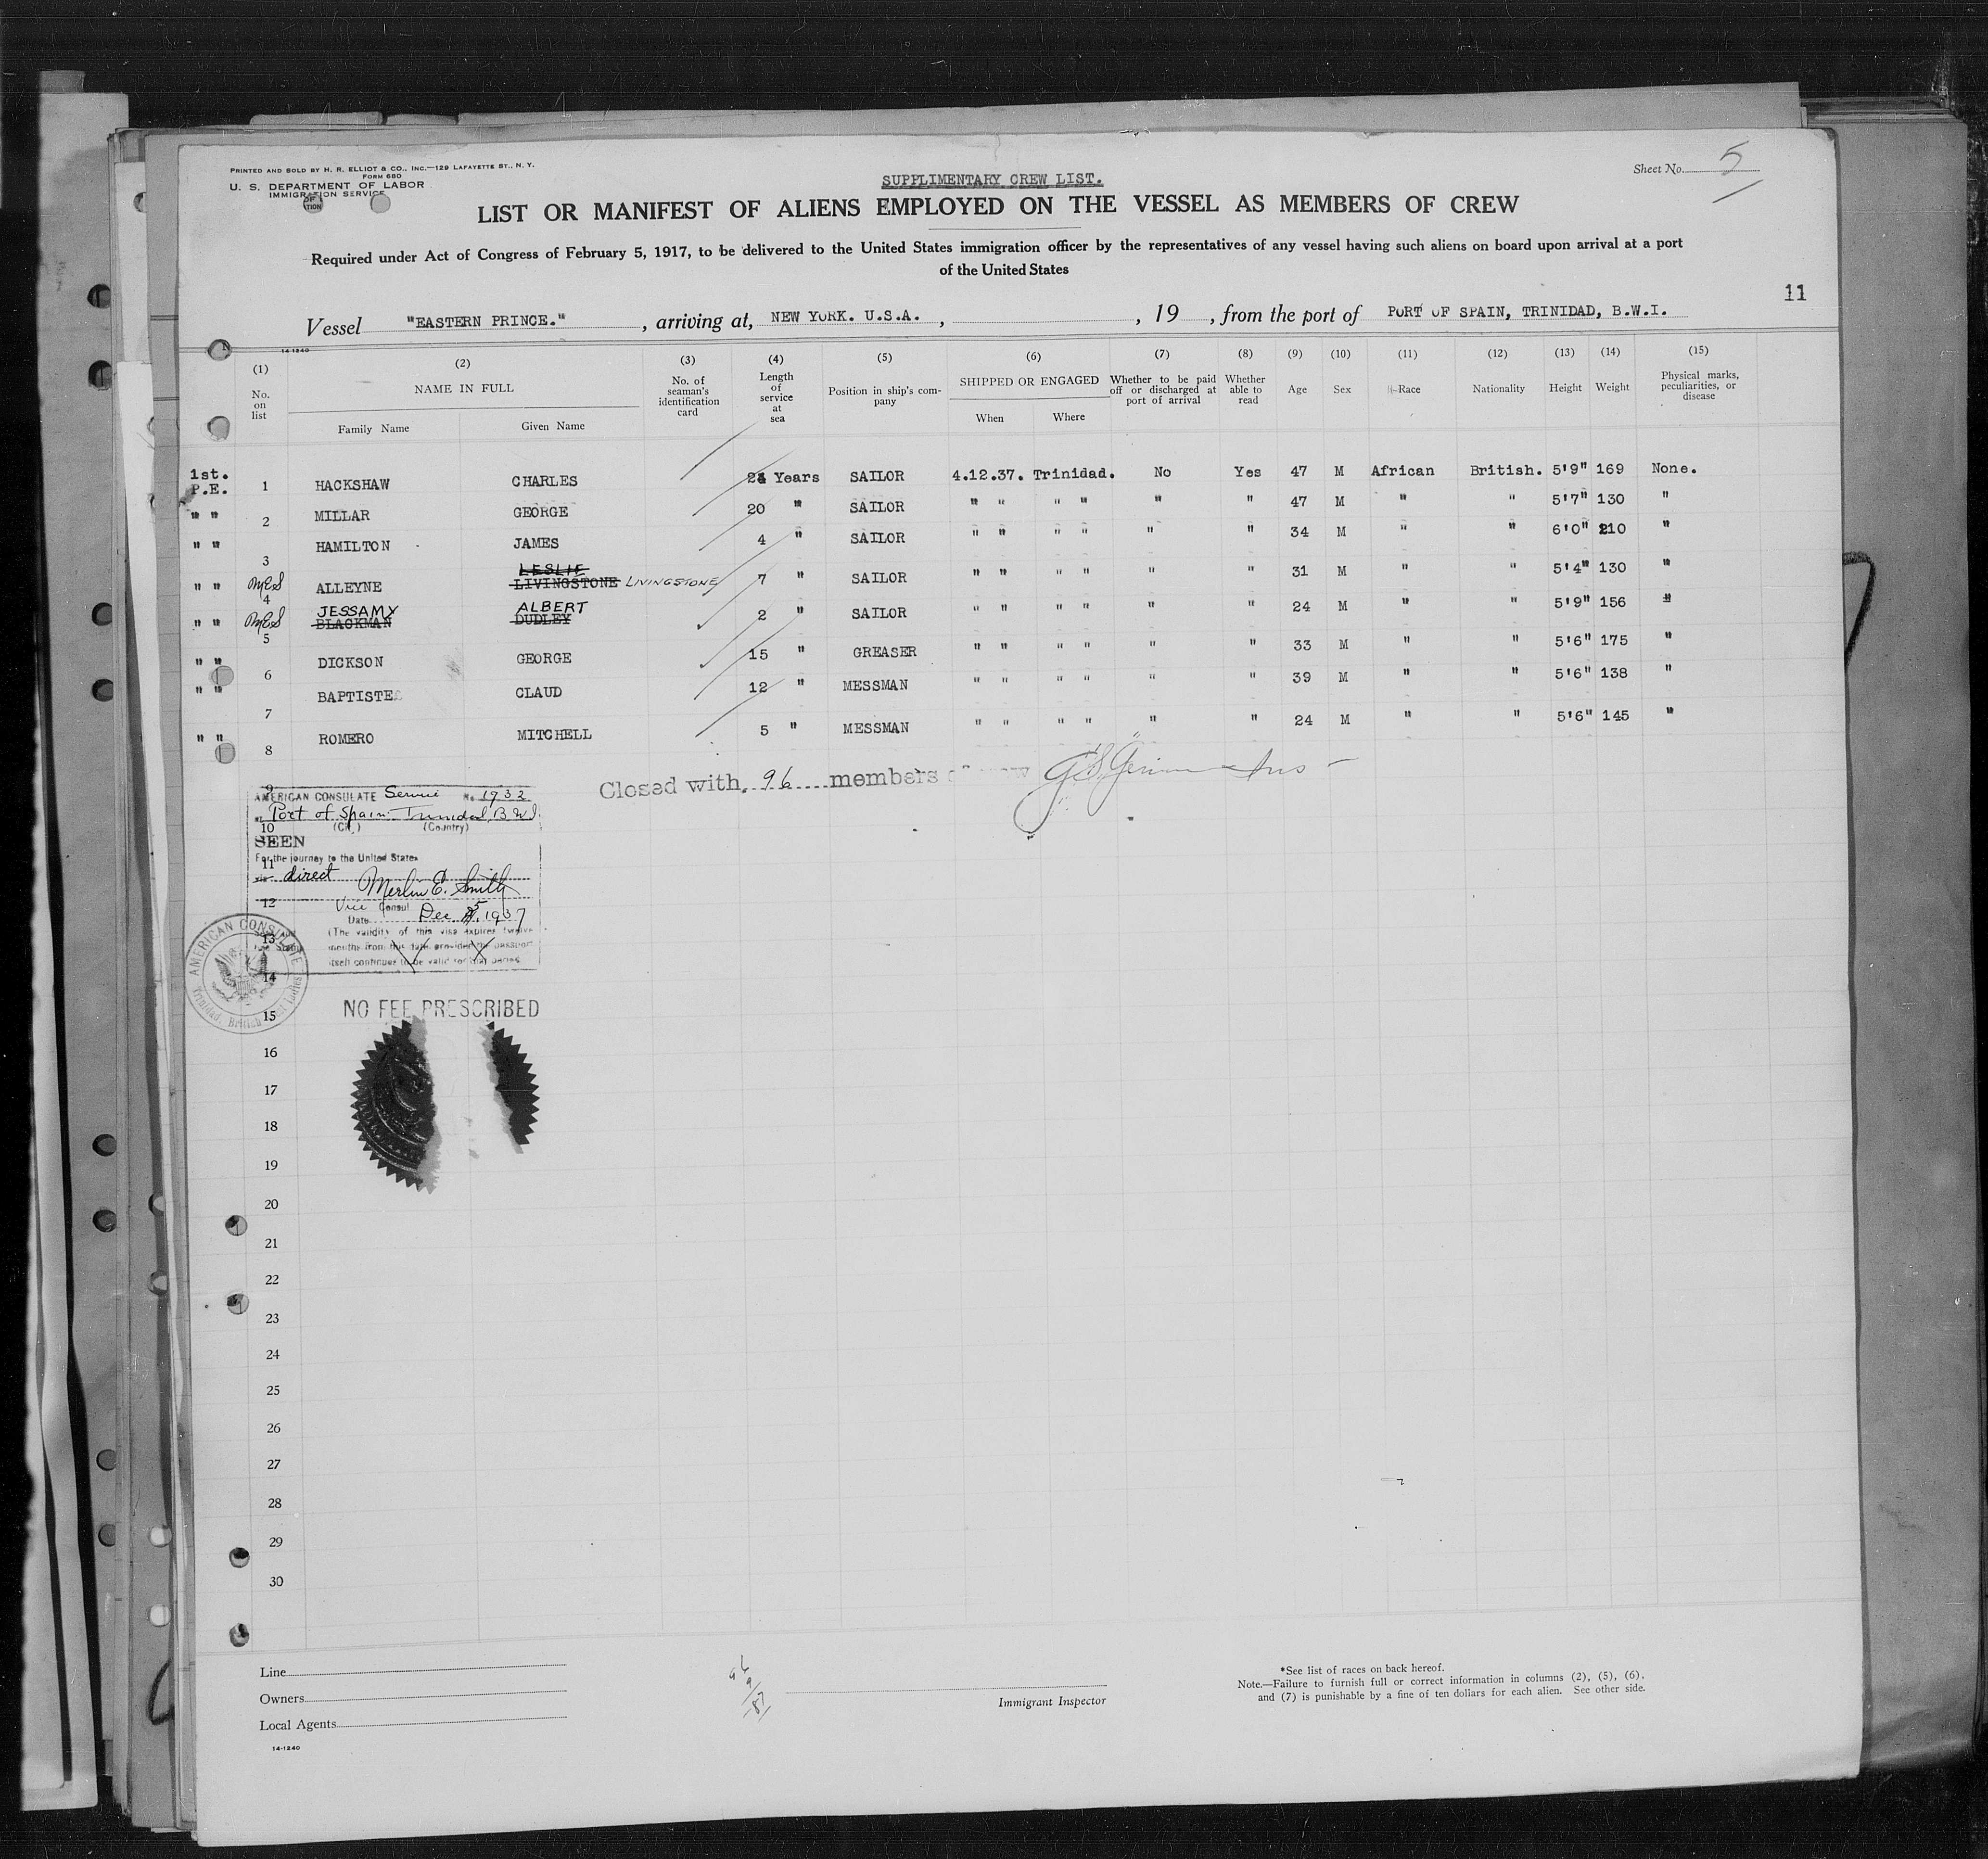 PRINTED AND SOLD BY H. R. ELLIOT & CO., INC.—129 LAFAYETTE ST., N. Y.
FORM 680
U. S. DEPARTMENT OF LABOR
IMMIGRATION SERVICE
Sheet No. 5
SUPPLIMENTARY CREW LIST.
LIST OR MANIFEST OF ALIENS EMPLOYED ON THE VESSEL AS MEMBERS OF CREW
Required under Act of Congress of February 5, 1917, to be delivered to the United States immigration officer by the representatives of any vessel having such aliens on board upon arrival at a port
of the United States
11
Vessel "EASTERN PRINCE." , arriving at, NEW YORK. U.S.A. , , 19 , from the port of PORT OF SPAIN, TRINIDAD, B.W.I.
14-1240
(1) No. on list
(2) NAME IN FULL Family Name Given Name
(3) No. of seaman's identification card
(4) Length of service at sea
(5) Position in ship's company
(6) SHIPPED OR ENGAGED When Where
(7) Whether to be paid off or discharged at port of arrival
(8) Whether able to read
(9) Age
(10) Sex
(11) Race
(12) Nationality
(13) Height
(14) Weight
(15) Physical marks, peculiarities, or disease
1st. P.E. 1 HACKSHAW CHARLES Years SAILOR 4.12.37. Trinidad. No Yes 47 M African British. 5'9" 169 None.
" " 2 MILLAR GEORGE 20 " SAILOR " " " " " " 47 M " " 5'7" 130 "
" " 3 HAMILTON JAMES 4 " SAILOR " " " " " " 34 M " " 6'0" 210 "
" " MES 4 ALLEYNE LESLIE LIVINGSTONE LIVINGSTONE 7 " SAILOR " " " " " " 31 M " " 5'4" 130 "
" " MES 5 JESSAMY BLACKMAN ALBERT DUDLEY 2 " SAILOR " " " " " " 24 M " " 5'9" 156 "
" " 6 DICKSON GEORGE 15 " GREASER " " " " " " 33 M " " 5'6" 175 "
" " 7 BAPTISTE CLAUD 12 " MESSMAN " " " " " " 39 M " " 5'6" 138 "
" " 8 ROMERO MITCHELL 5 " MESSMAN " " " " " " 24 M " " 5'6" 145 "
Closed with 96 members
9
AMERICAN CONSULATE Service No. 1932
Port of Spain Trinidad, B.W.I.
10
(City) (Country)
SEEN
11
For the journey to the United States
via direct
Merlin E. Smith
12
Vice Consul
Date Dec 5, 1937
(The validity of this visa expires twelve
13
months from this date provided the passport
itself continues to be valid for that period.
14
AMERICAN CONSULATE
Trinidad, British West Indies
NO FEE PRESCRIBED
15
16
17
18
19
20
21
22
23
24
25
26
27
28
29
30
Line
Owners
Local Agents
14-1240
96
9
87
Immigrant Inspector
*See list of races on back hereof.
Note.—Failure to furnish full or correct information in columns (2), (5), (6),
and (7) is punishable by a fine of ten dollars for each alien. See other side.